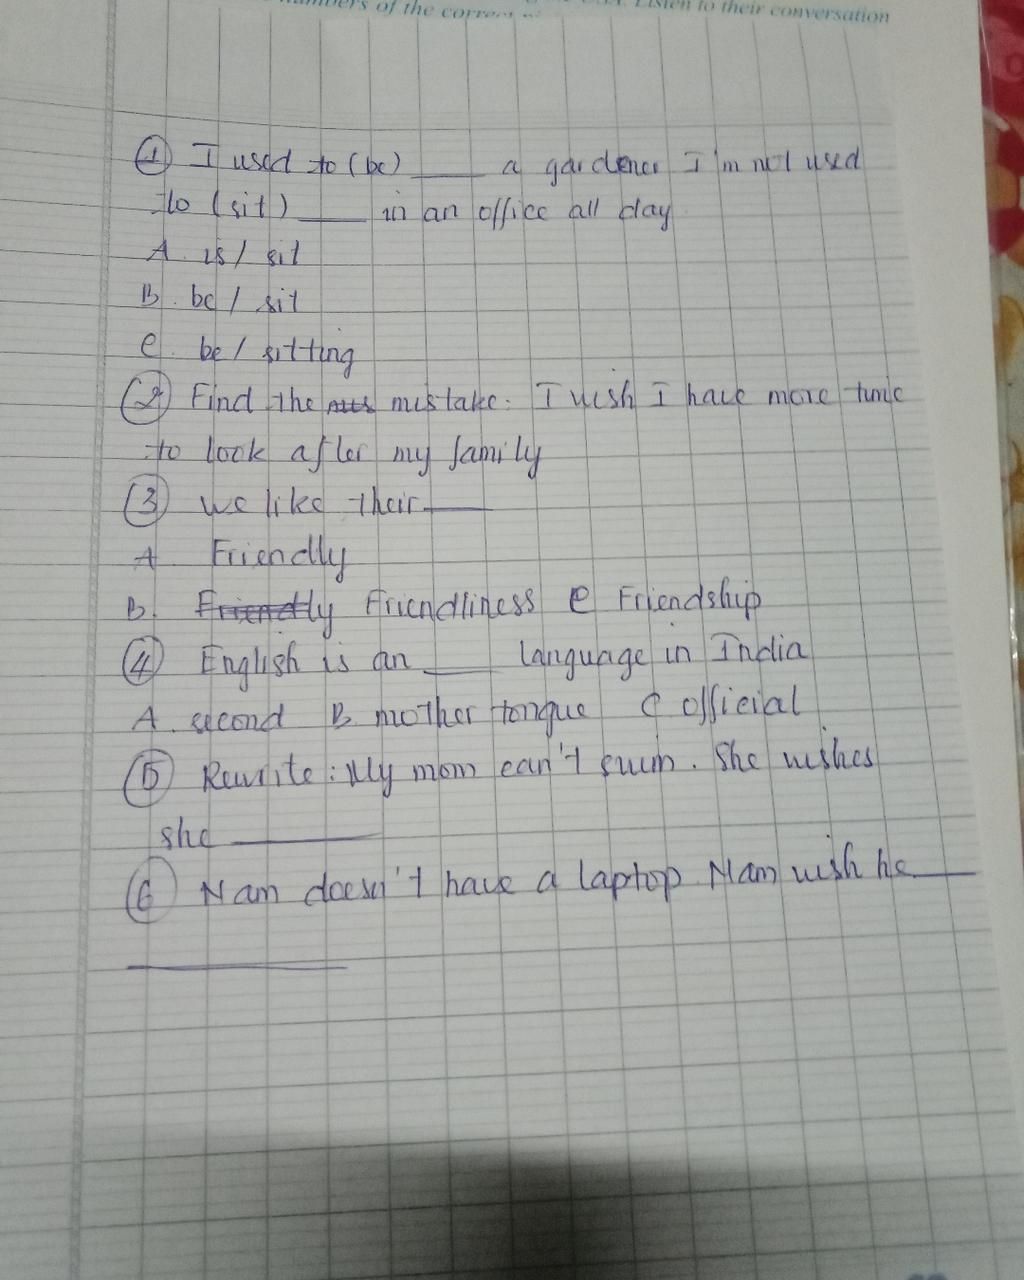 of the correct
Listen to their conversation
① I used to (be) ____ a gardener I'm not used
to (sit) ____ in an office all day
A is / sit
B. be / sit
C. be / sitting
② Find the mistake: I wish I have more time
to look after my family
③ we like their ____
A Friendly
B. Friendly Friendliness C Friendship
④ English is an ____ language in India
A. second B mother tongue C official
⑤ Rewrite: My mom can't swim. She wishes
she ____
⑥ Nam doesn't have a laptop. Nam wish he ____
____